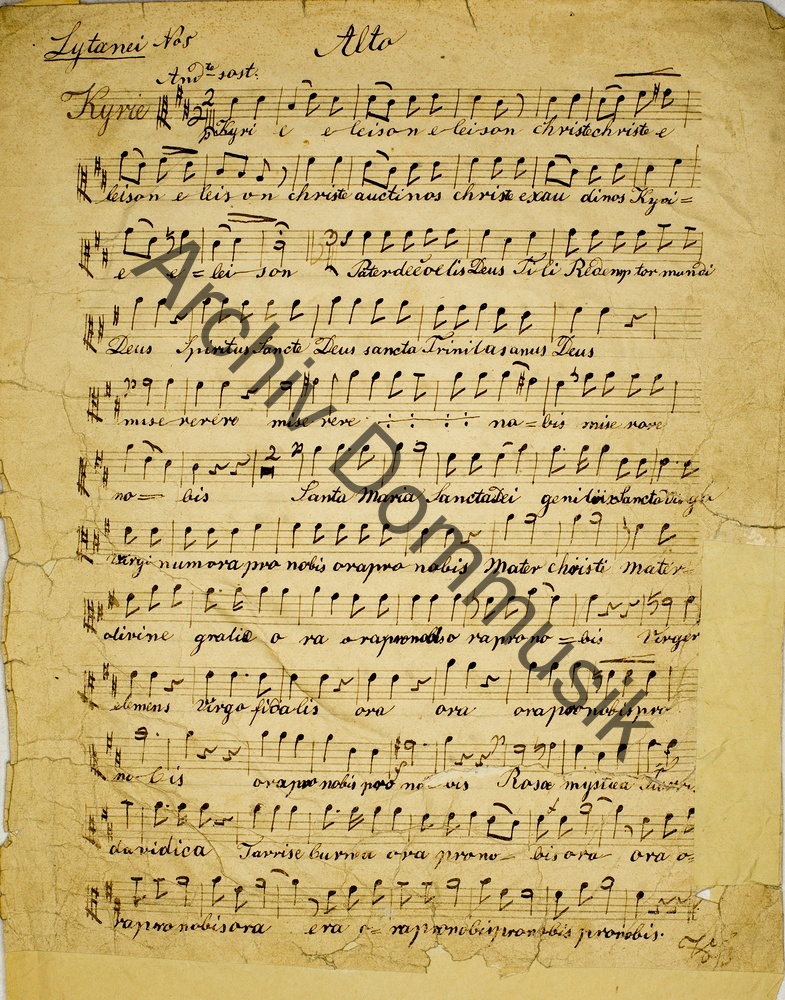 Lytanei No5 Alto
Andte sost.
Kyrie
Kyri e e leison e leison christe christe e
leison e leis on christe auctinos christe exau dinos Kyri=
e e = lei son Pater de coelis Deus Fili Redemp tor mundi
Deus Spiritus Sancte Deus sancta Trinitas anus Deus
mise rerere mise rere no = bis mise rore
no = bis Santa Maria Sancta Dei geni trix Sancta virgo
virgi num ora pro nobis ora pro nobis Mater christi mater
divine gratie o ra ora pro nobis o ra pro no = bis Virger
clemens Virgo fidalis ora ora ora pro nobis pro
no bis ora pro nobis pro no bis Rosa mystica Turri
davidica Turris e burna ora pro no bis ora ora o=
ra pro nobis ora era o= ra pro nobis pro nobis pro nobis.
Archiv Dommusik